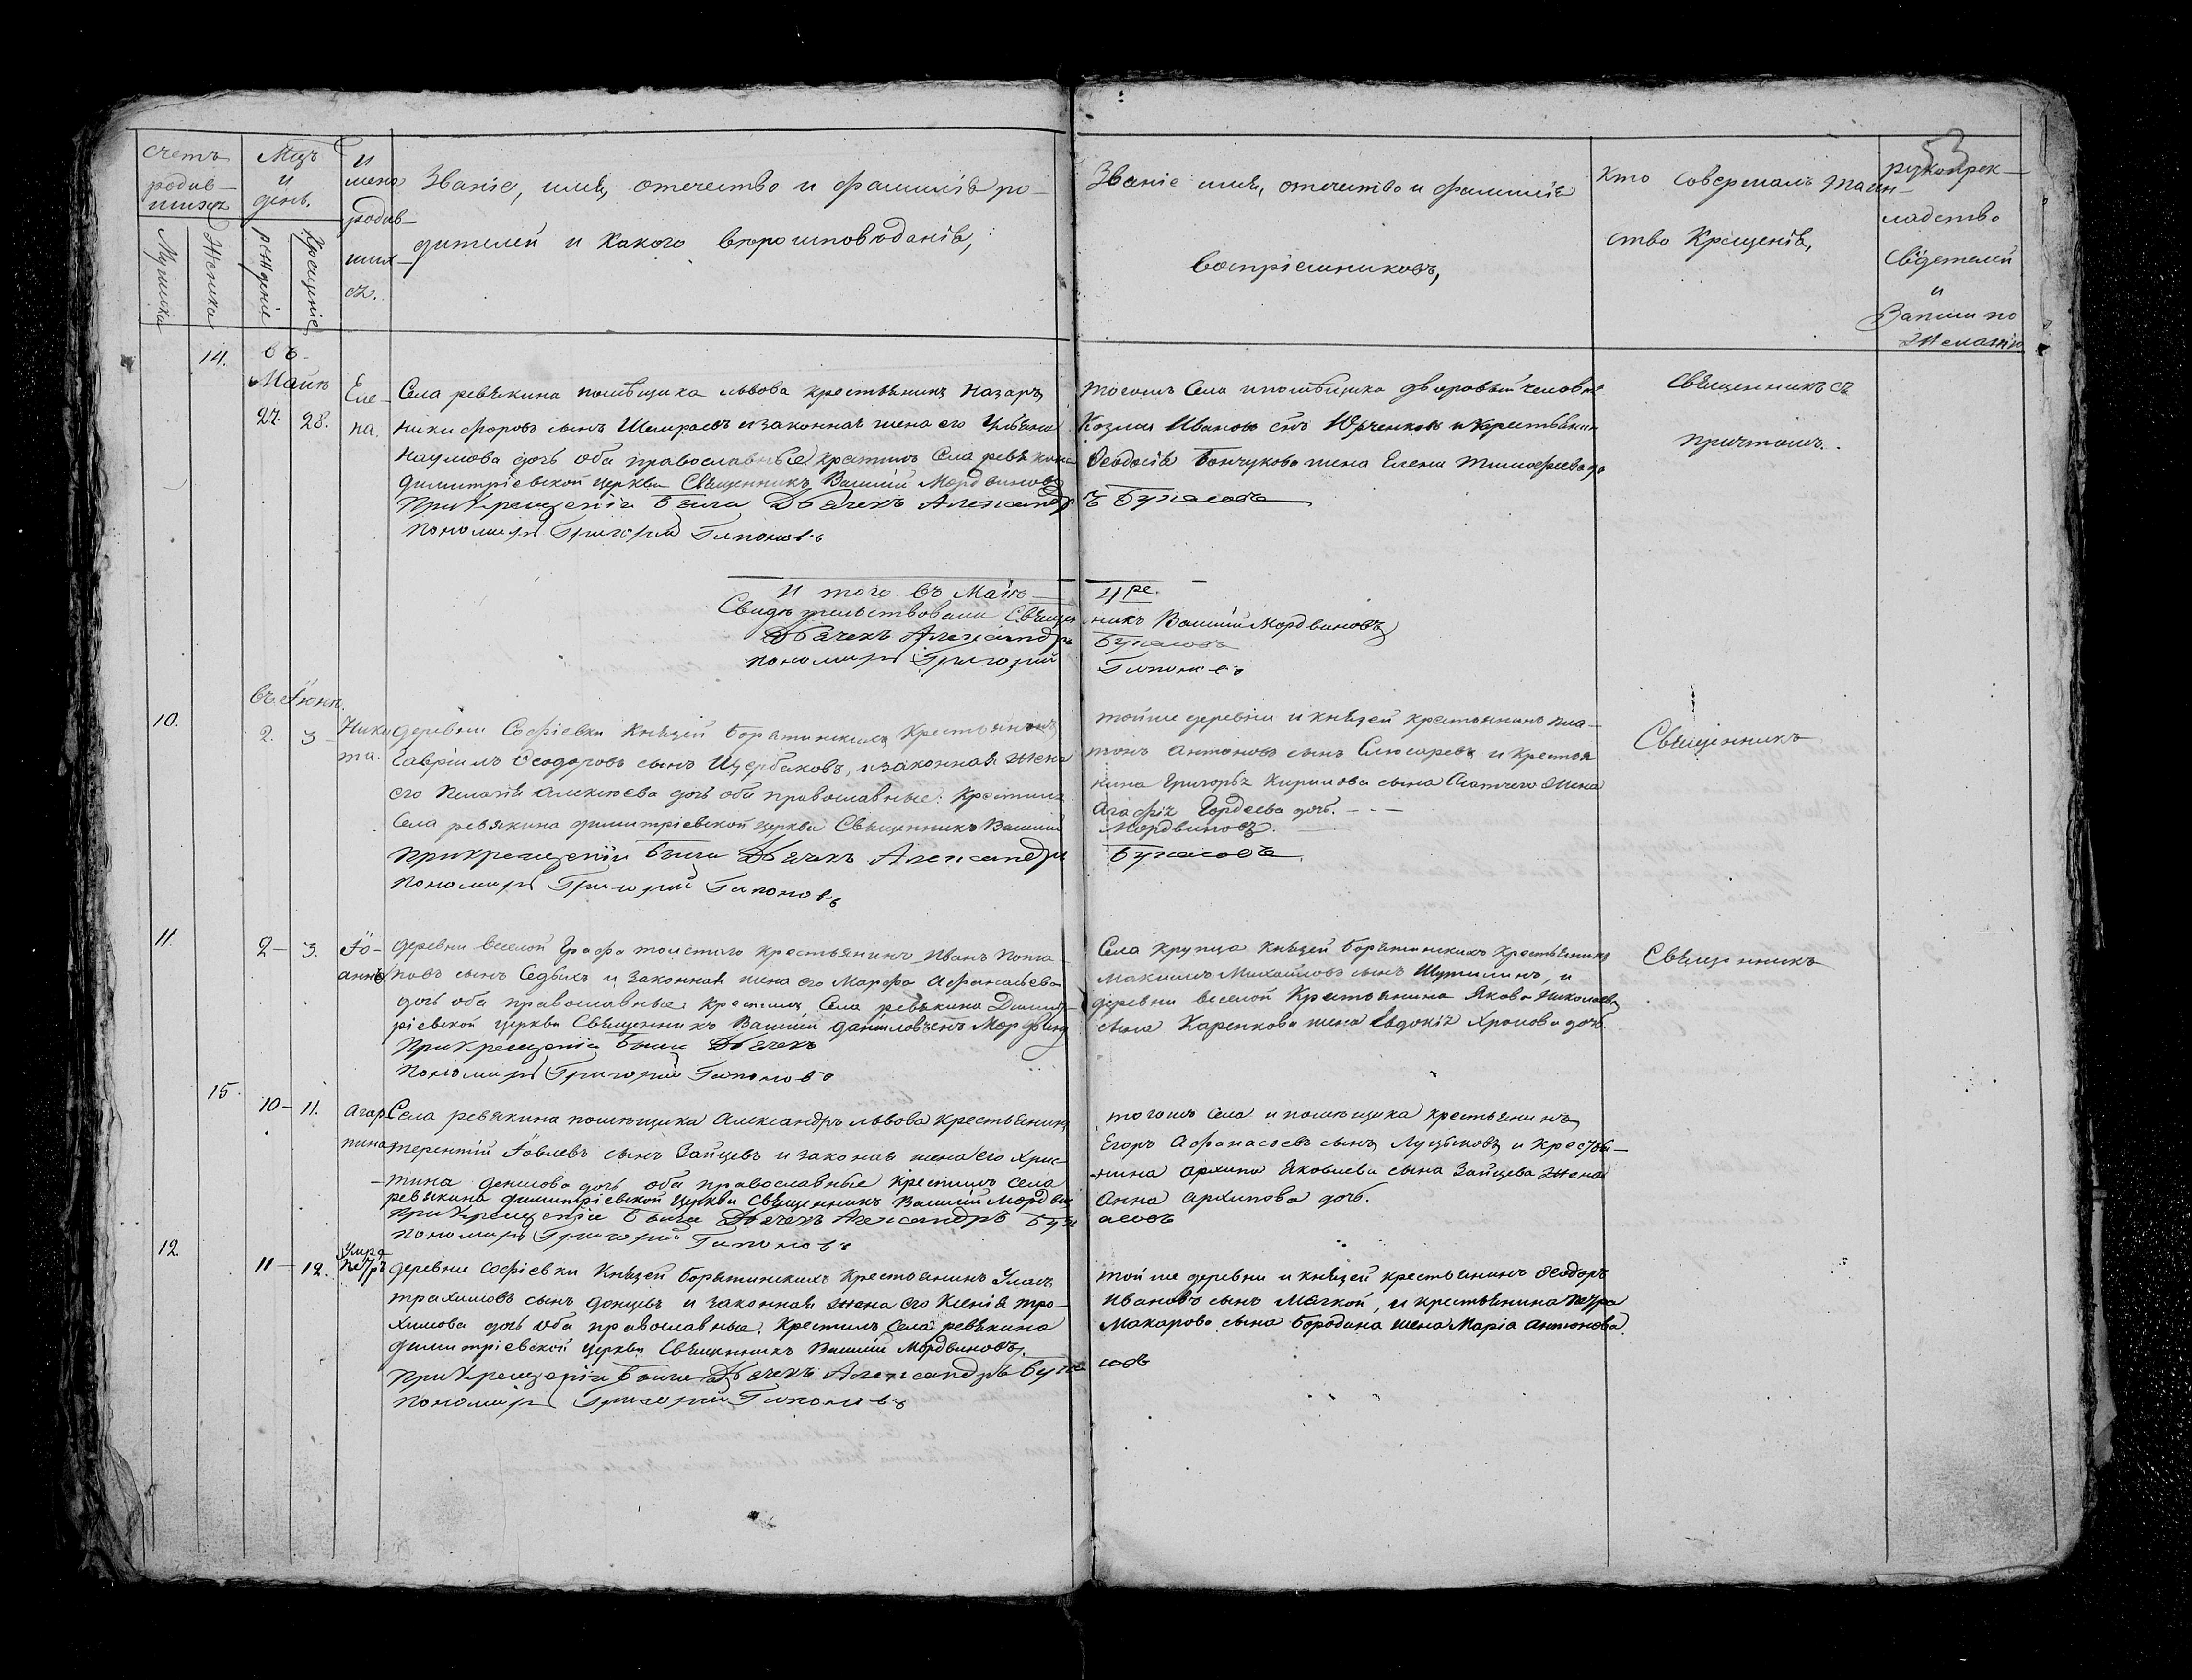 53
Счетъ родив-шихся
Мужска
Женска
Мцъ и день.
рожденiе
Крещенiе
Имена родив-шихся.
Званiе, имя, отечество и фамилiя ро-
дителей и какого вероисповѣданiя,
Званiе имя, отечество и фамилiя
воспрiемниковъ,
Кто совершалъ таин-
ство Крещенiя,
рукоприк-
ладство
Свидетелей
и
Записи по
желанiю
14.
въ
Маiи
27. 28.
Еле-
на.
Села ревякина помѣщика львова крестьянинъ Назаръ
никифоровъ сынъ и законная жена его Ульяна
наумова дочь оба православные крестилъ Села ревякина
димитрiевской церкви Священникъ Василiй Мордвиновъ
При Крещенiи Были Дьячекъ Александръ
Пономарь Григорiй Гапоновъ
тогожъ Села и помѣщика дворовый человѣкъ
Козма Ивановъ снъ Юрченковъ и крестьянина
Ѳеодосiя жена Елена тимофеева до
чь
Священникъ съ
причтомъ.
И того въ Маiи 4ре.
Свидѣтельствовали Священникъ Василiй Мордвиновъ
Дьячекъ Александръ
пономарь Григорiй Гапоновъ
въ Iюнѣ.
10.
2. 3
Ники
та.
деревни Софiевки Князей Борятинскихъ Крестьянинъ
Гаврiилъ Ѳеодоровъ сынъ Щербаковъ, и законная жена
его Пелагiя алексѣева дочь оба православные: Крестилъ
Села ревякина димитрiевской церкви Священникъ Василiй
При крещенiи Были Дьячекъ Александръ
пономарь Григорiй Гапоновъ
тойже деревни и князей крестьянинъ пла-
тонъ антоновъ сынъ Слюсаревъ и крестья
нина Григорья Кирилова сына жена
Агафiя Гордеева дочь.
Мордвиновъ.
Священникъ
11.
2 — 3.
Iо-
аннъ
деревни веселой Графа толстого крестьянинъ Иванъ Пота
повъ сынъ Седыхъ и законная жена его Марфа Афанасьева
дочь оба православные: крестилъ Села ревякина Димит-
рiевской церкви Священникъ Василiй
При Крещенiи Были Дьячекъ
Пономарь Григорiй Гапоновъ
Села Крупца Князей Борятинскихъ крестьянинъ
Максимъ Михайловъ сынъ Шутилинъ, и
деревни веселой Крестьянина Якова Николаева
сына Каренкова жена Евдокiя дочь.
Священникъ
15.
10 — 11.
Агри
пина
Села ревякина помѣщика Александръ львова крестьянинъ
терентiй Iовлевъ сынъ Зайцевъ и законая жена его Хрис-
тина денисова дочь оба православные крестилъ села
ревякина димитрiевской церкви Священникъ Василiй Мордви
При Крещенiи Были Дьячекъ Александръ
пономарь Григорiй Гапоновъ
тогожъ села и помѣщика крестьянинъ
Егоръ Афанасьевъ сынъ и Крестья-
нина архипа Яковлева сына Зайцева жена
Анна архипова дочь.
12.
11 — 12.
Умре
Петръ
деревни софiевки Князей Борятинскихъ Крестьянинъ
трахимовъ сынъ донцевъ и законная жена его Ксенiя тро-
химова дочь оба православные. Крестилъ Села ревякина
димитрiевской церкви Священникъ Василiй Мордвиновъ.
При Крещенiи Были Дьячекъ Александръ
пономарь Григорiй Гапоновъ
той же деревни и князей крестьянинъ Ѳеодоръ
Ивановъ сынъ Мягкой, и крестьянина Петра
Макарова сына Бородина жена Марiа антонова.